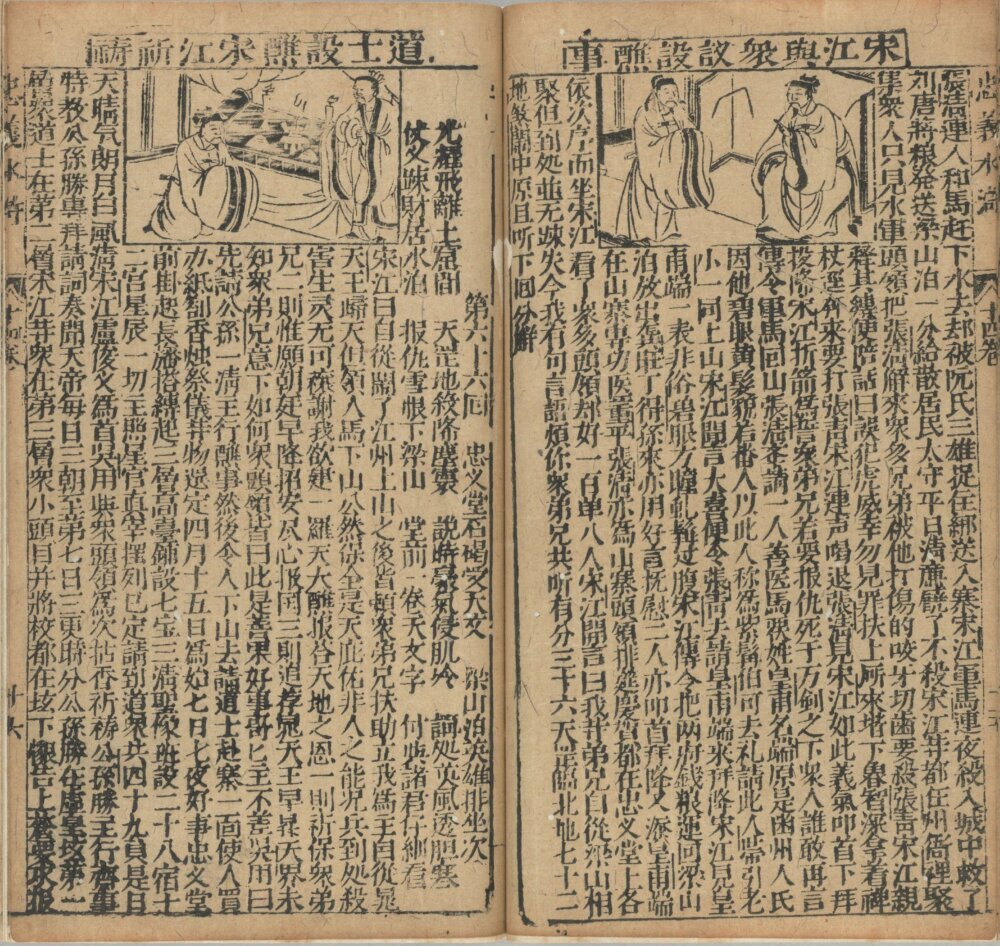 宋江與衆議設醮事
忠義水滸
張清連人和馬赶下水去却被阮氏三雄捉在綁送入寨宋江軍馬連夜殺入城中救了
刘唐將粮發送梁山泊一分給散居民太守平日清廉饒了不殺宋江等都在州衙裡聚
集衆人只見水軍頭領把張清解來衆多兄弟被他打傷的咬牙切齒要殺張青宋江親
釋其縳便陪話曰誤犯虎威幸勿見罪扶上所來堦下魯智深拿着禅
杖逕奔來要打張青宋江連声喝退張清見宋江如此義氣叩首下拜
投降宋江折箭為誓衆弟兄若要报仇死于万劍之下衆人誰敢再言
傳令軍馬回山張清奉請一人善医馬獸姓皇甫名端原是凾州人氏
因他碧眼黄髪貌若番人以此人称為紫髯伯可去礼請此人帶引老
小一同上山宋江聞言大喜便令張青去請皇甫端來拜降宋江見皇
甫端一表非俗碧眼方瞳虬髯过腹宋江傳令把兩府錢粮運回梁山
泊放出龔旺丁得孫來亦用好言抚慰二人亦叩首拜降又添皇甫端
在山寨專功医獸平張清亦為山寨頭領排筵慶賀都在忠义堂上各
依次序而坐宋江看了衆多頭領却好一百单八人宋江開言曰我等弟兄自從梁山相
聚但到处並无踈失今我有句言語煩你衆弟兄共听有分三十六天罡臨北地七十二
地煞閙中原且听下回分觧
道士設醮宋江祈禱
第六十六回 忠义堂石碣受天文 梁山泊英雄排坐次
光耀飛離土窟間 天罡地煞降塵寰 說時豪氣侵肌冷 講処英風透胆寒
仗义踈財居水泊 报仇雪恨下梁山 堂前一卷天文字 付與諸君仔細看
宋江曰自從閙了江州上山之後皆頼衆弟兄扶助立我為王自從晁
天王歸天但領人馬下山公然保全是天庇佑非人之能况兵到処殺
害生灵无可禳謝我欲建一羅天大醮报答天地之恩一則祈保衆弟
兄二則惟願朝廷早降招安尽心报国三則追荐晁天王早昇天界未
知衆弟兄意下如何衆頭領皆曰此是善果好事哥匕主不差吳用曰
先請公孫一清主行醮事然後令人下山去請道士赴寨一面使人買
办紙劄香烛祭儀等物選定四月十五日為始七日七夜好事忠义堂
前掛起長旛搭縳起三層高臺鋪設七宝三清聖像班設二十八宿十
二宫星辰一切主照星官真宰擺列已定請到道衆共四十九員是日
天晴氣朗月白風清宋江盧俊义為首吳用與衆頭領為次拈香祈祷公孫勝主行齊事
特教公孫勝專拜請詞奏聞天帝每日三朝至第七日三更時分公孫勝在虛皇坛第一
層衆道士在第二層宋江等衆在第三層衆小頭目并將校都在坛下懇告上蒼要求报
忠義水滸